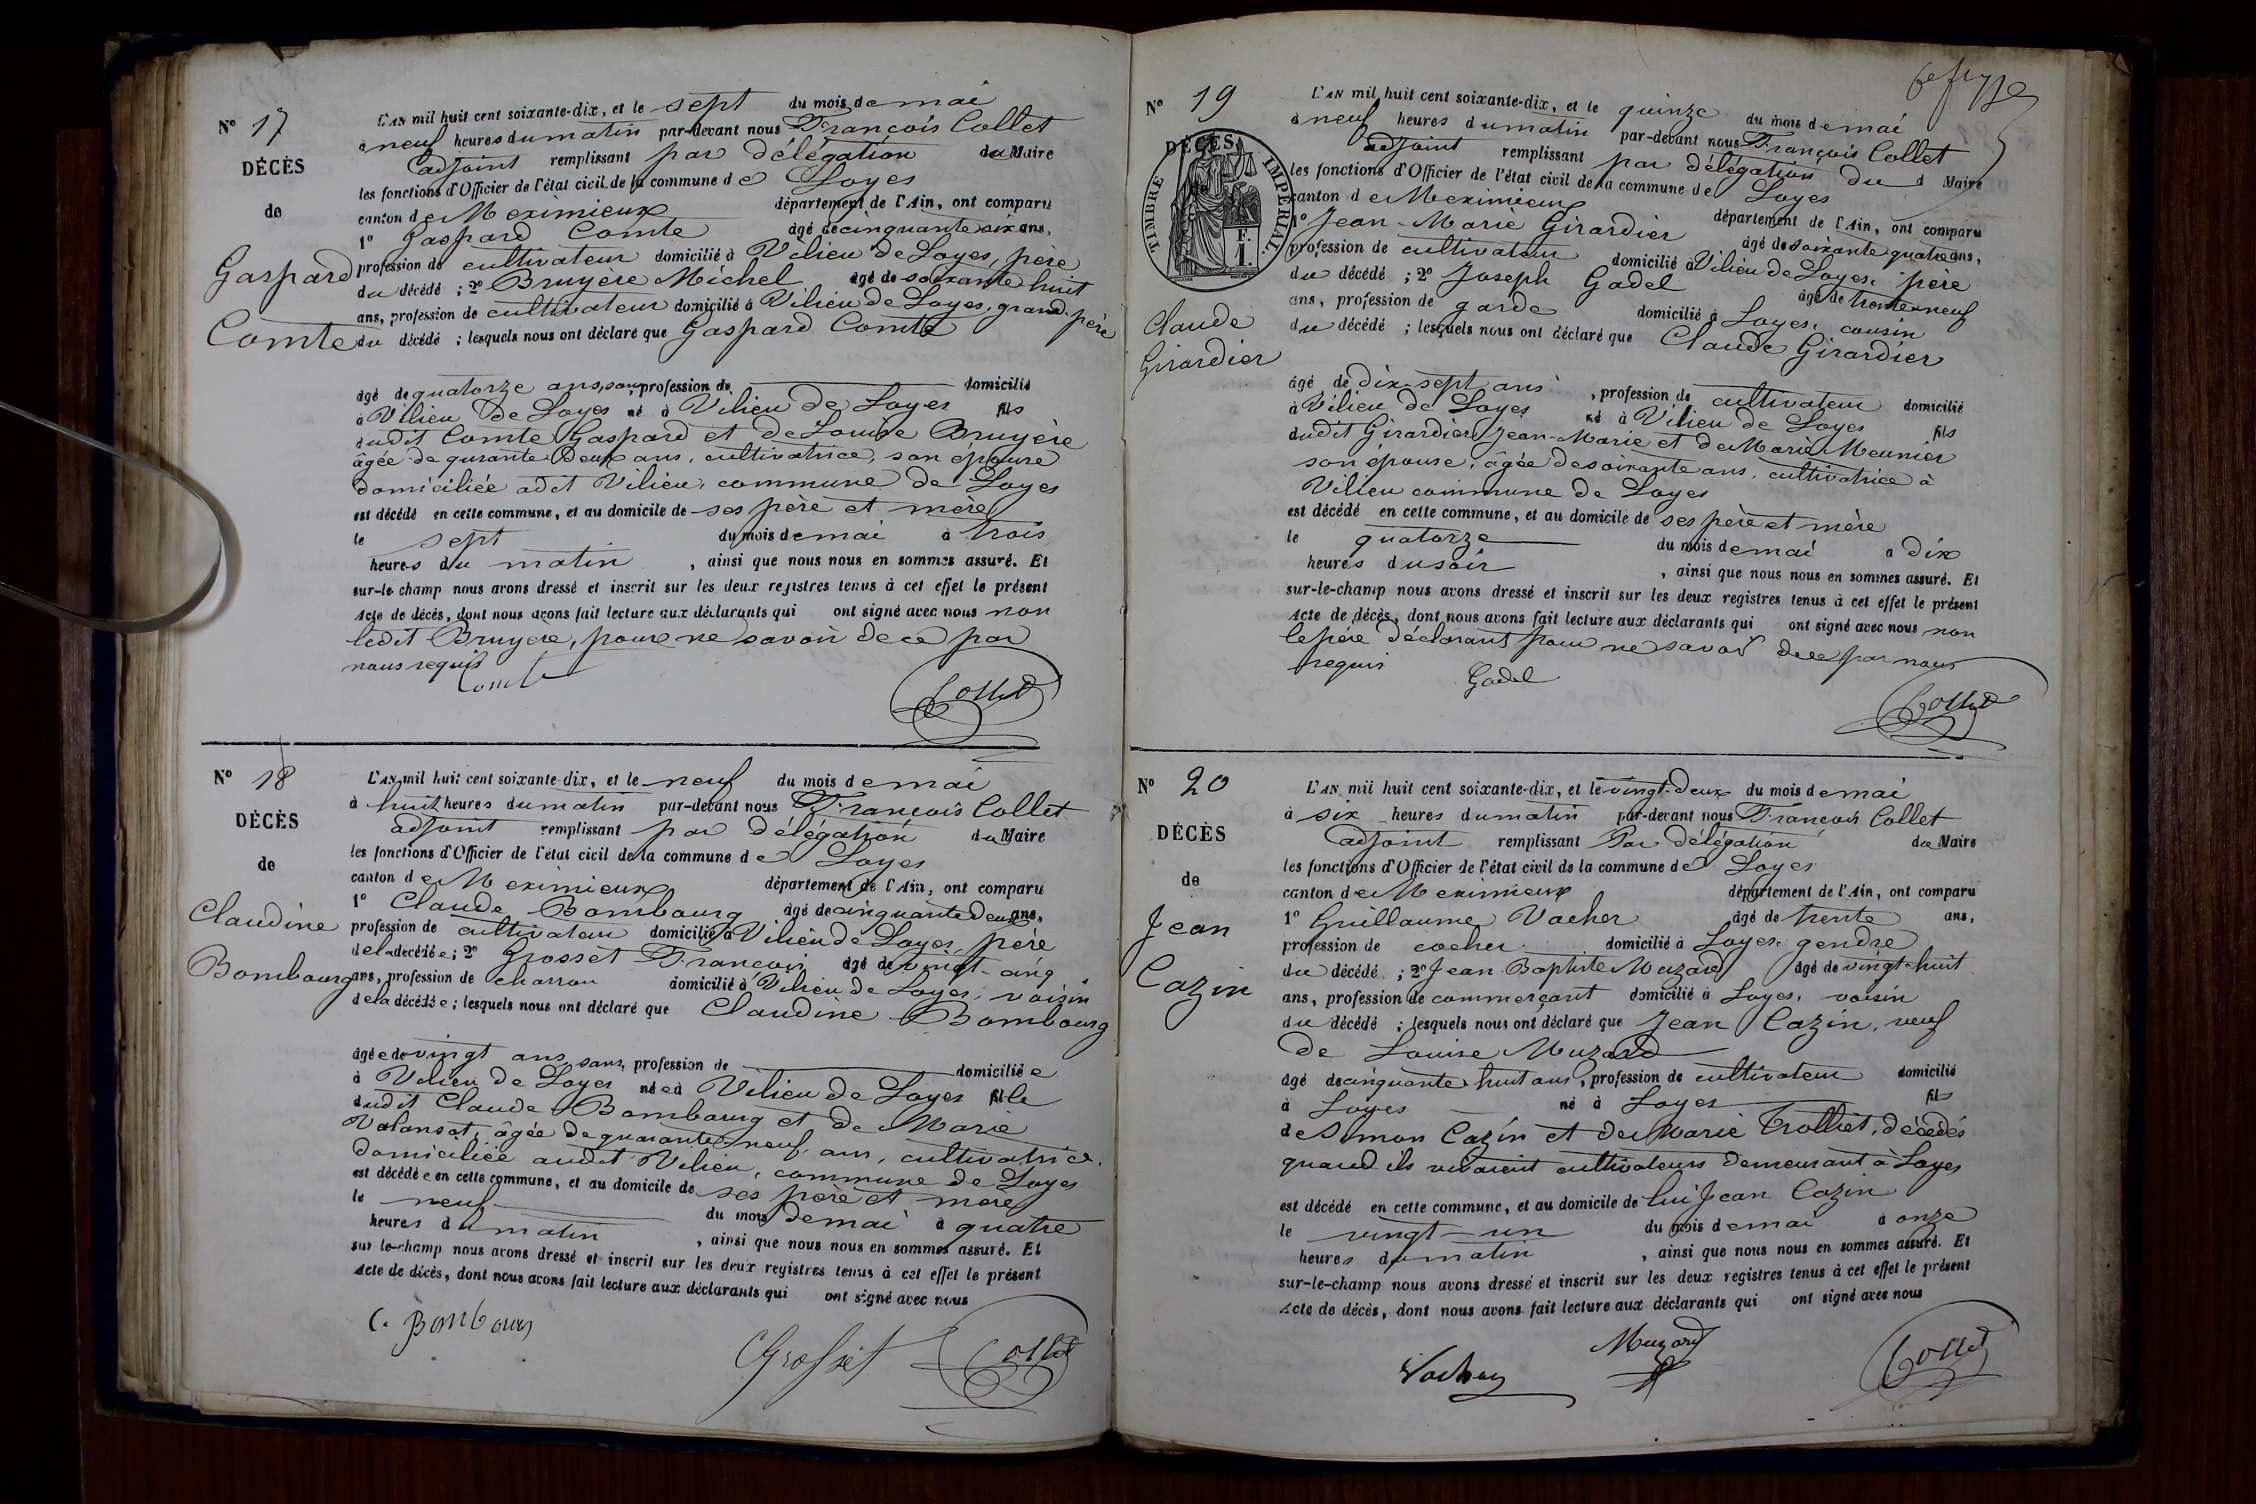 N° 17
DÉCÈS
de
Gaspard
Comte
L'AN mil huit cent soixante-dix, et le sept du mois de mai
à neuf heures du matin par-devant nous François Collet
adjoint remplissant par délégation du Maire
les fonctions d'Officier de l'état civil de la commune de Loyes
canton de Meximieux département de l'Ain, ont comparu
1° Gaspard Comte âgé de cinquante six ans,
profession de cultivateur domicilié à Vilieu de Loyes, père
du décédé ; 2° Bruyère Michel âgé de soixante huit
ans, profession de cultivateur domicilié à Vilieu de Loyes, grand-père
du décédé ; lesquels nous ont déclaré que Gaspard Comte
âgé de quatorze ans, sans profession de domicilié
à Vilieu de Loyes né à Vilieu de Loyes fils
dudit Comte Gaspard et de Louise Bruyère
âgée de qurante deux ans, cultivatrice, son épouse
domiciliée adet Vilieu, commune de Loyes
est décédé en cette commune, et au domicile de ses père et mère
le sept du mois de mai à trois
heures du matin, ainsi que nous nous en sommes assuré. Et
sur-le-champ nous avons dressé et inscrit sur les deux registres tenus à cet effet le présent
Acte de décès, dont nous avons fait lecture aux déclarants qui ont signé avec nous non
ledit Bruyère, pour ne savoir de ce par
nous requis
Comte
Collet
N° 18
DÉCÈS
de
Claudine
Bombourg
L'AN mil huit cent soixante-dix, et le neuf du mois de mai
à huit heures du matin par-devant nous François Collet
adjoint remplissant par délégation du Maire
les fonctions d'Officier de l'état civil de la commune de Loyes
canton de Meximieux département de l'Ain, ont comparu
1° Claude Bombourg âgé de cinquante deux ans,
profession de cultivateur domicilié à Vilieu de Loyes, père
de la décédée ; 2° Grosset François âgé de vingt-cinq
ans, profession de charron domicilié à Vilieu de Loyes, voisin
de la décédée ; lesquels nous ont déclaré que Claudine Bombourg
âgée de vingt ans, sans profession de domiciliée
à Vilieu de Loyes née à Vilieu de Loyes fille
dudit Claude Bombourg et de Marie
Valansot, âgée de quarante-neuf ans, cultivatrice,
domiciliée audit Vilieu, commune de Loyes
est décédée en cette commune, et au domicile de ses père et mère
le neuf du mois de mai à quatre
heures du matin, ainsi que nous nous en sommes assuré. Et
sur-le-champ nous avons dressé et inscrit sur les deux registres tenus à cet effet le présent
Acte de décès, dont nous avons fait lecture aux déclarants qui ont signé avec nous
C. Bombourg
Grosset
Collet
N° 19
DÉCÈS
TIMBRE IMPÉRIAL
1 F.
Claude
Girardier
L'AN mil huit cent soixante-dix, et le quinze du mois de mai
à neuf heures du matin par-devant nous François Collet
adjoint remplissant par délégation du d Maire
les fonctions d'Officier de l'état civil de la commune de Loyes
canton de Meximieux département de l'Ain, ont comparu
1° Jean-Marie Girardier âgé de soixante quatre ans,
profession de cultivateur domicilié à Vilieu de Loyes, père
du décédé ; 2° Joseph Gadel âgé de trente-neuf
ans, profession de garde domicilié à Loyes, cousin
du décédé ; lesquels nous ont déclaré que Claude Girardier
âgé de dix-sept ans, profession de cultivateur domicilié
à Vilieu de Loyes né à Vilieu de Loyes fils
dudit Girardier Jean-Marie et de Marie Meunier
son épouse, âgée de soixante ans, cultivatrice à
Vilieu commune de Loyes
est décédé en cette commune, et au domicile de ses père et mère
le quatorze du mois de mai à dix
heures du soir, ainsi que nous nous en sommes assuré. Et
sur-le-champ nous avons dressé et inscrit sur les deux registres tenus à cet effet le présent
Acte de décès, dont nous avons fait lecture aux déclarants qui ont signé avec nous non
le père déclarant pour ne savoir de ce par nous
requis
Gadel
Collet
N° 20
DÉCÈS
de
Jean
Cazin
L'AN mil huit cent soixante-dix, et le vingt-deux du mois de mai
à six heures du matin par-devant nous François Collet
adjoint remplissant Par délégation du Maire
les fonctions d'Officier de l'état civil de la commune de Loyes
canton de Meximieux département de l'Ain, ont comparu
1° Guillaume Vacher âgé de trente ans,
profession de cocher domicilié à Loyes, gendre
du décédé ; 2° Jean-Baptiste Muzard âgé de vingt-huit
ans, profession de commerçant domicilié à Loyes, voisin
du décédé ; lesquels nous ont déclaré que Jean Cazin, veuf
de Louise Muzard
âgé de cinquante-huit ans, profession de cultivateur domicilié
à Loyes né à Loyes fils
de Simon Cazin et de Marie Trolliet, décédés
quand ils vivaient cultivateurs demeurant à Loyes
est décédé en cette commune, et au domicile de lui Jean Cazin
le vingt-un du mois de mai à onze
heures du matin, ainsi que nous nous en sommes assuré. Et
sur-le-champ nous avons dressé et inscrit sur les deux registres tenus à cet effet le présent
Acte de décès, dont nous avons fait lecture aux déclarants qui ont signé avec nous
Vacher
Muzard
Collet